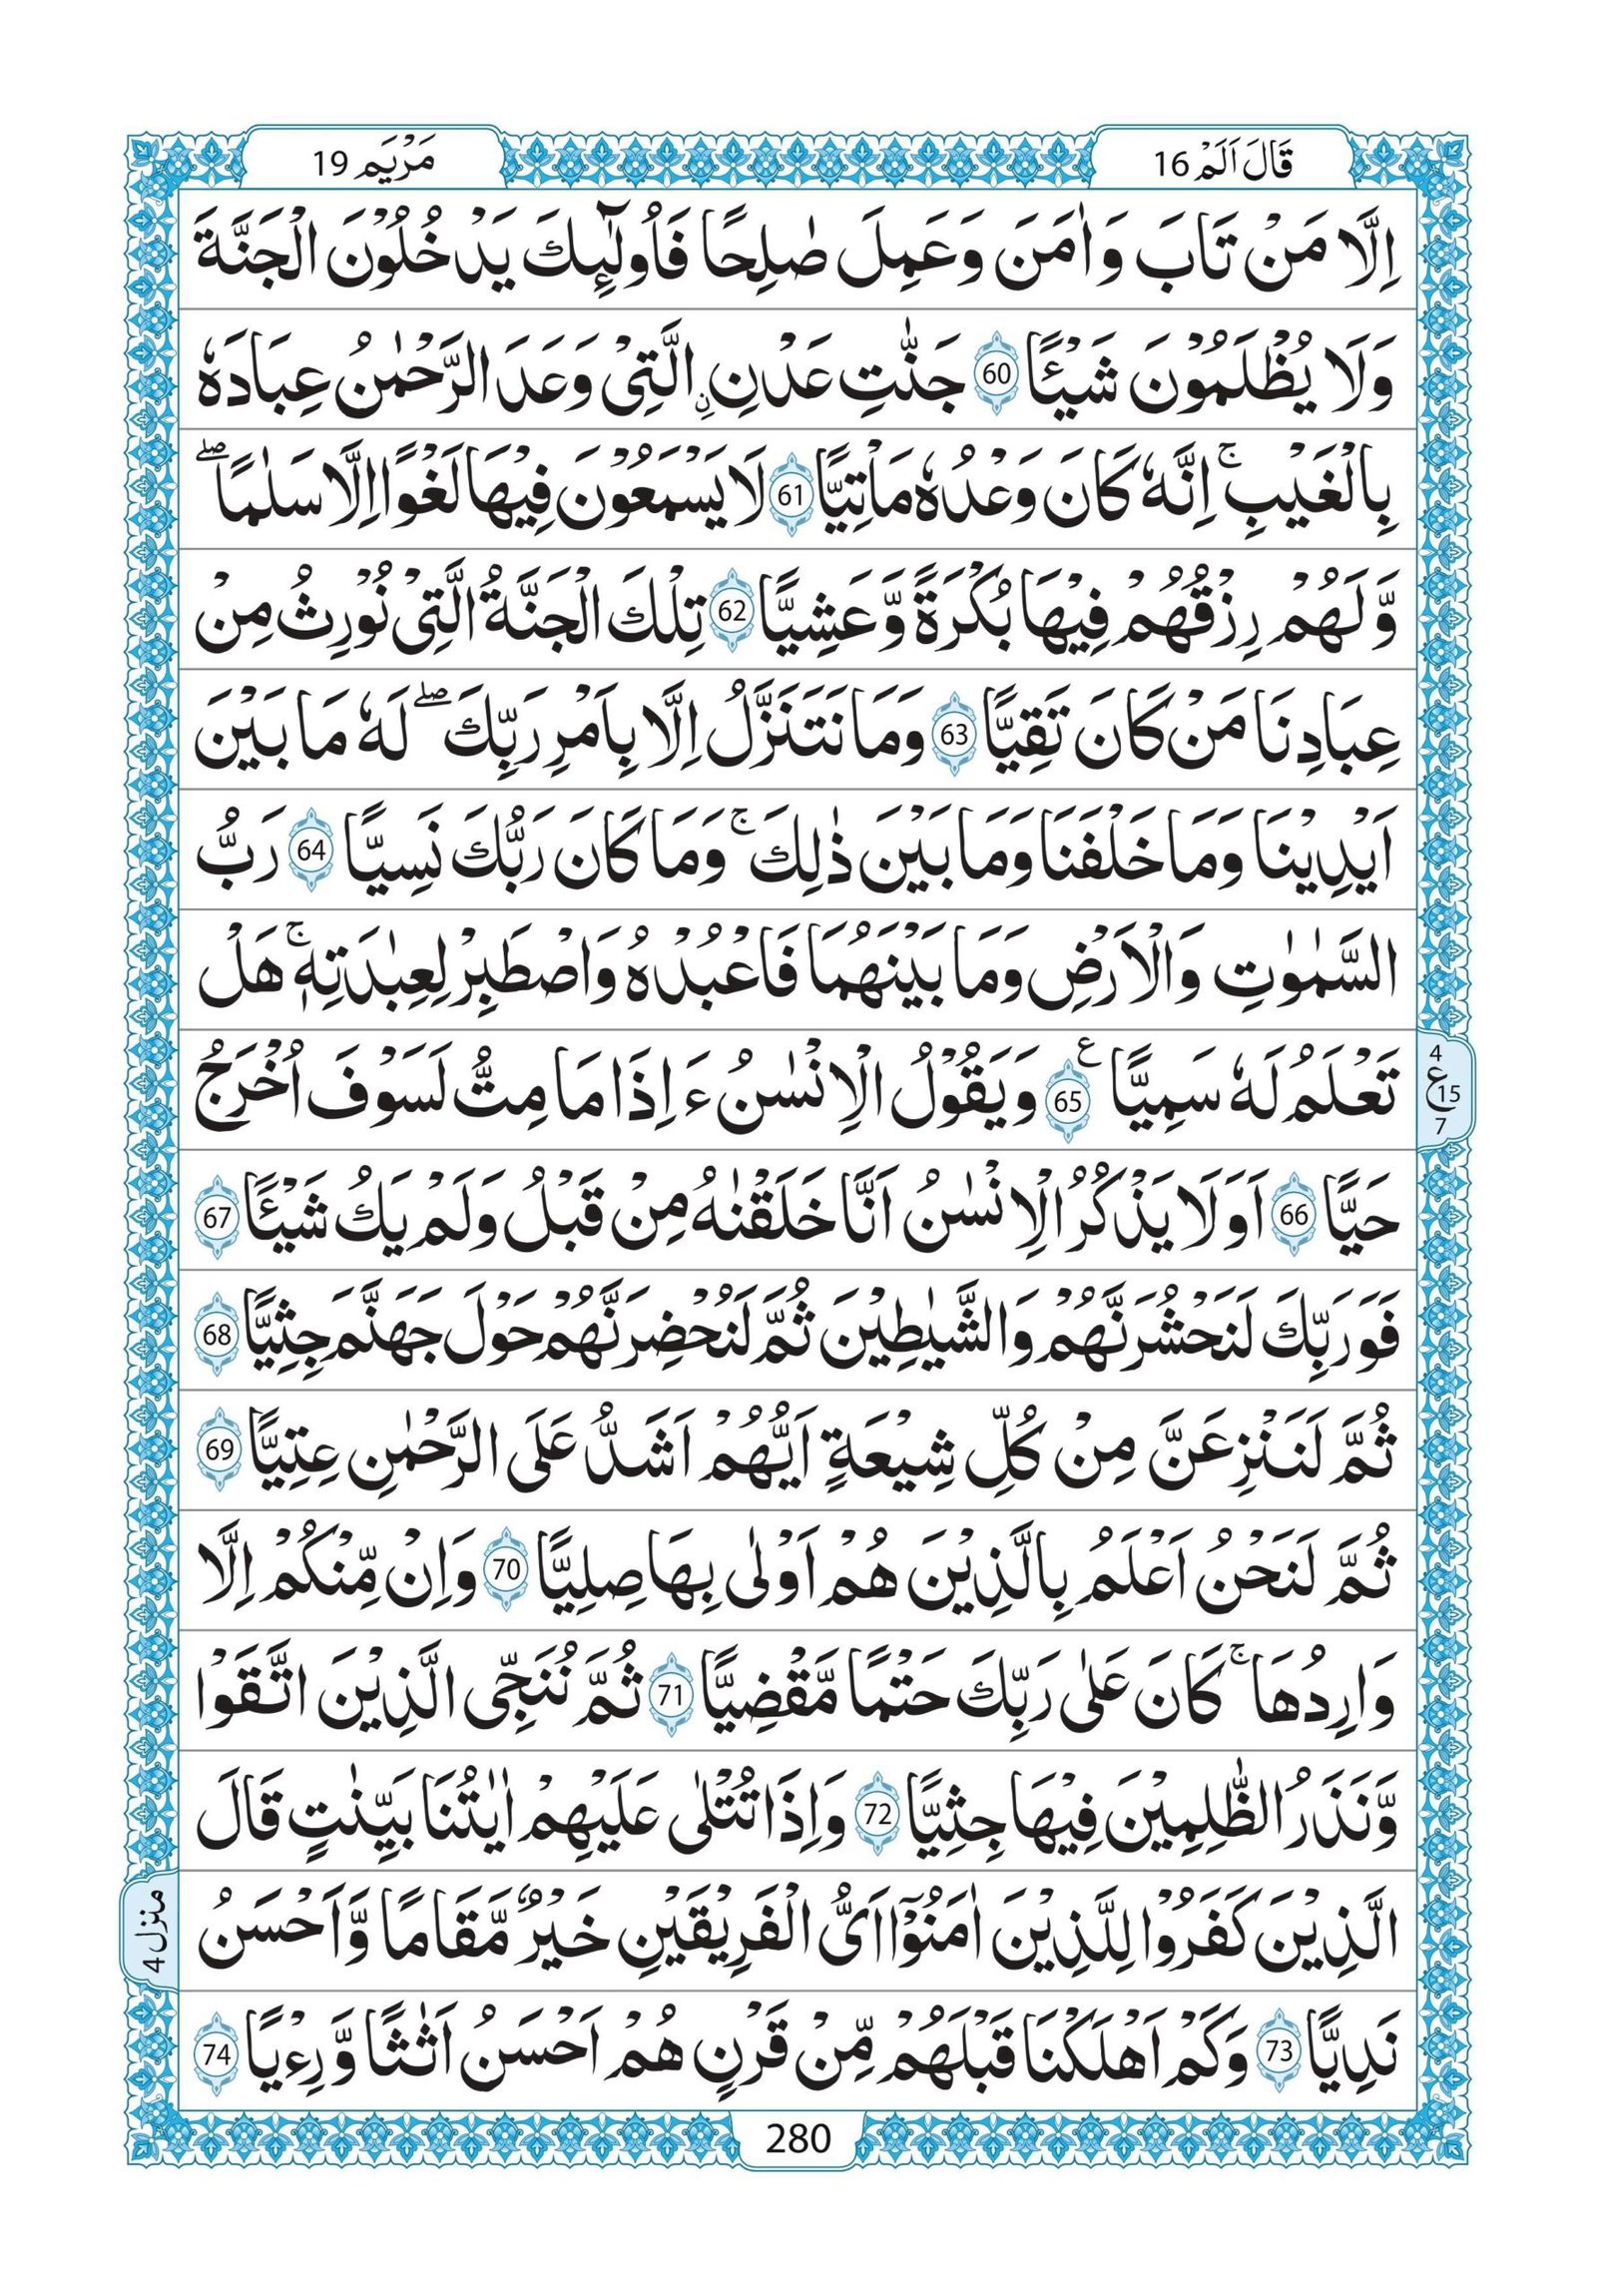 قَالَ اَلَمْ 16
مَرْيَم 19
اِلَّا مَنْ تَابَ وَاٰمَنَ وَعَمِلَ صٰلِحًا فَاُولٰٓئِكَ يَدْخُلُوْنَ الْجَنَّةَ
وَلَا يُظْلَمُوْنَ شَيْـًٔا 60 جَنّٰتِ عَدْنِ ِۨالَّتِیْ وَعَدَ الرَّحْمٰنُ عِبَادَهٗ
بِالْغَيْبِ ؕ اِنَّهٗ كَانَ وَعْدُهٗ مَاْتِيًّا 61 لَا يَسْمَعُوْنَ فِيْهَا لَغْوًا اِلَّا سَلٰمًا ۖ
وَّلَهُمْ رِزْقُهُمْ فِيْهَا بُكْرَةً وَّعَشِيًّا 62 تِلْكَ الْجَنَّةُ الَّتِیْ نُوْرِثُ مِنْ
عِبَادِنَا مَنْ كَانَ تَقِيًّا 63 وَمَا نَتَنَزَّلُ اِلَّا بِاَمْرِ رَبِّكَ ۖ لَهٗ مَا بَيْنَ
اَيْدِيْنَا وَمَا خَلْفَنَا وَمَا بَيْنَ ذٰلِكَ ۚ وَمَا كَانَ رَبُّكَ نَسِيًّا 64 رَبُّ
السَّمٰوٰتِ وَالْاَرْضِ وَمَا بَيْنَهُمَا فَاعْبُدْهُ وَاصْطَبِرْ لِعِبٰدَتِهٖ ۚ هَلْ
تَعْلَمُ لَهٗ سَمِيًّا 65 ع وَيَقُوْلُ الْاِنْسٰنُ ءَ اِذَا مَا مِتُّ لَسَوْفَ اُخْرَجُ
4 ع 15 7
حَيًّا 66 اَوَلَا يَذْكُرُ الْاِنْسٰنُ اَنَّا خَلَقْنٰهُ مِنْ قَبْلُ وَلَمْ يَكُ شَيْـًٔا 67
فَوَرَبِّكَ لَنَحْشُرَنَّهُمْ وَالشَّيٰطِيْنَ ثُمَّ لَنُحْضِرَنَّهُمْ حَوْلَ جَهَنَّمَ جِثِيًّا 68
ثُمَّ لَنَنْزِعَنَّ مِنْ كُلِّ شِيْعَةٍ اَيُّهُمْ اَشَدُّ عَلَى الرَّحْمٰنِ عِتِيًّا 69
ثُمَّ لَنَحْنُ اَعْلَمُ بِالَّذِيْنَ هُمْ اَوْلٰى بِهَا صِلِيًّا 70 وَاِنْ مِّنْكُمْ اِلَّا
وَارِدُهَا ۚ كَانَ عَلٰى رَبِّكَ حَتْمًا مَّقْضِيًّا 71 ثُمَّ نُنَجِّى الَّذِيْنَ اتَّقَوْا
وَّنَذَرُ الظّٰلِمِيْنَ فِيْهَا جِثِيًّا 72 وَاِذَا تُتْلٰى عَلَيْهِمْ اٰيٰتُنَا بَيِّنٰتٍ قَالَ
الَّذِيْنَ كَفَرُوْا لِلَّذِيْنَ اٰمَنُوْٓا اَىُّ الْفَرِيْقَيْنِ خَيْرٌ مَّقَامًا وَّاَحْسَنُ
منزل 4
نَدِيًّا 73 وَكَمْ اَهْلَكْنَا قَبْلَهُمْ مِّنْ قَرْنٍ هُمْ اَحْسَنُ اَثٰثًا وَّرِءْيًا 74
280